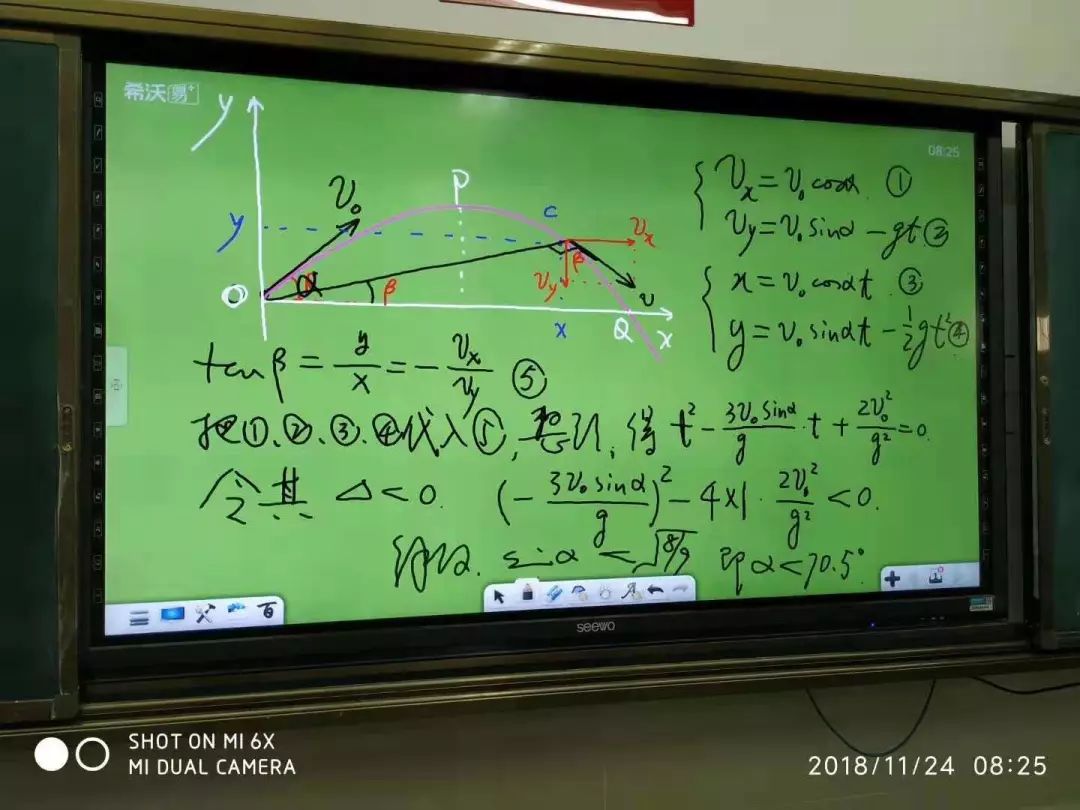 希沃易+
08:25
y
v₀
P
y
C
vₓ
α
β
β
v_y
v
O
x
Q
x
vₓ = v₀cosα ①
v_y = v₀sinα - gt ②
x = v₀cosαt ③
y = v₀sinαt - ½gt² ④
tanβ = y/x = - vₓ/v_y ⑤
把①、②、③、④代入⑤, 整引, 得 t² - 3v₀sinα/g · t + 2v₀²/g² = 0.
令其 Δ < 0. (- 3v₀sinα/g)² - 4×1 · 2v₀²/g² < 0.
sinα < √8/9 即α < 70.5°
seewo
SHOT ON MI 6X
MI DUAL CAMERA
2018/11/24 08:25